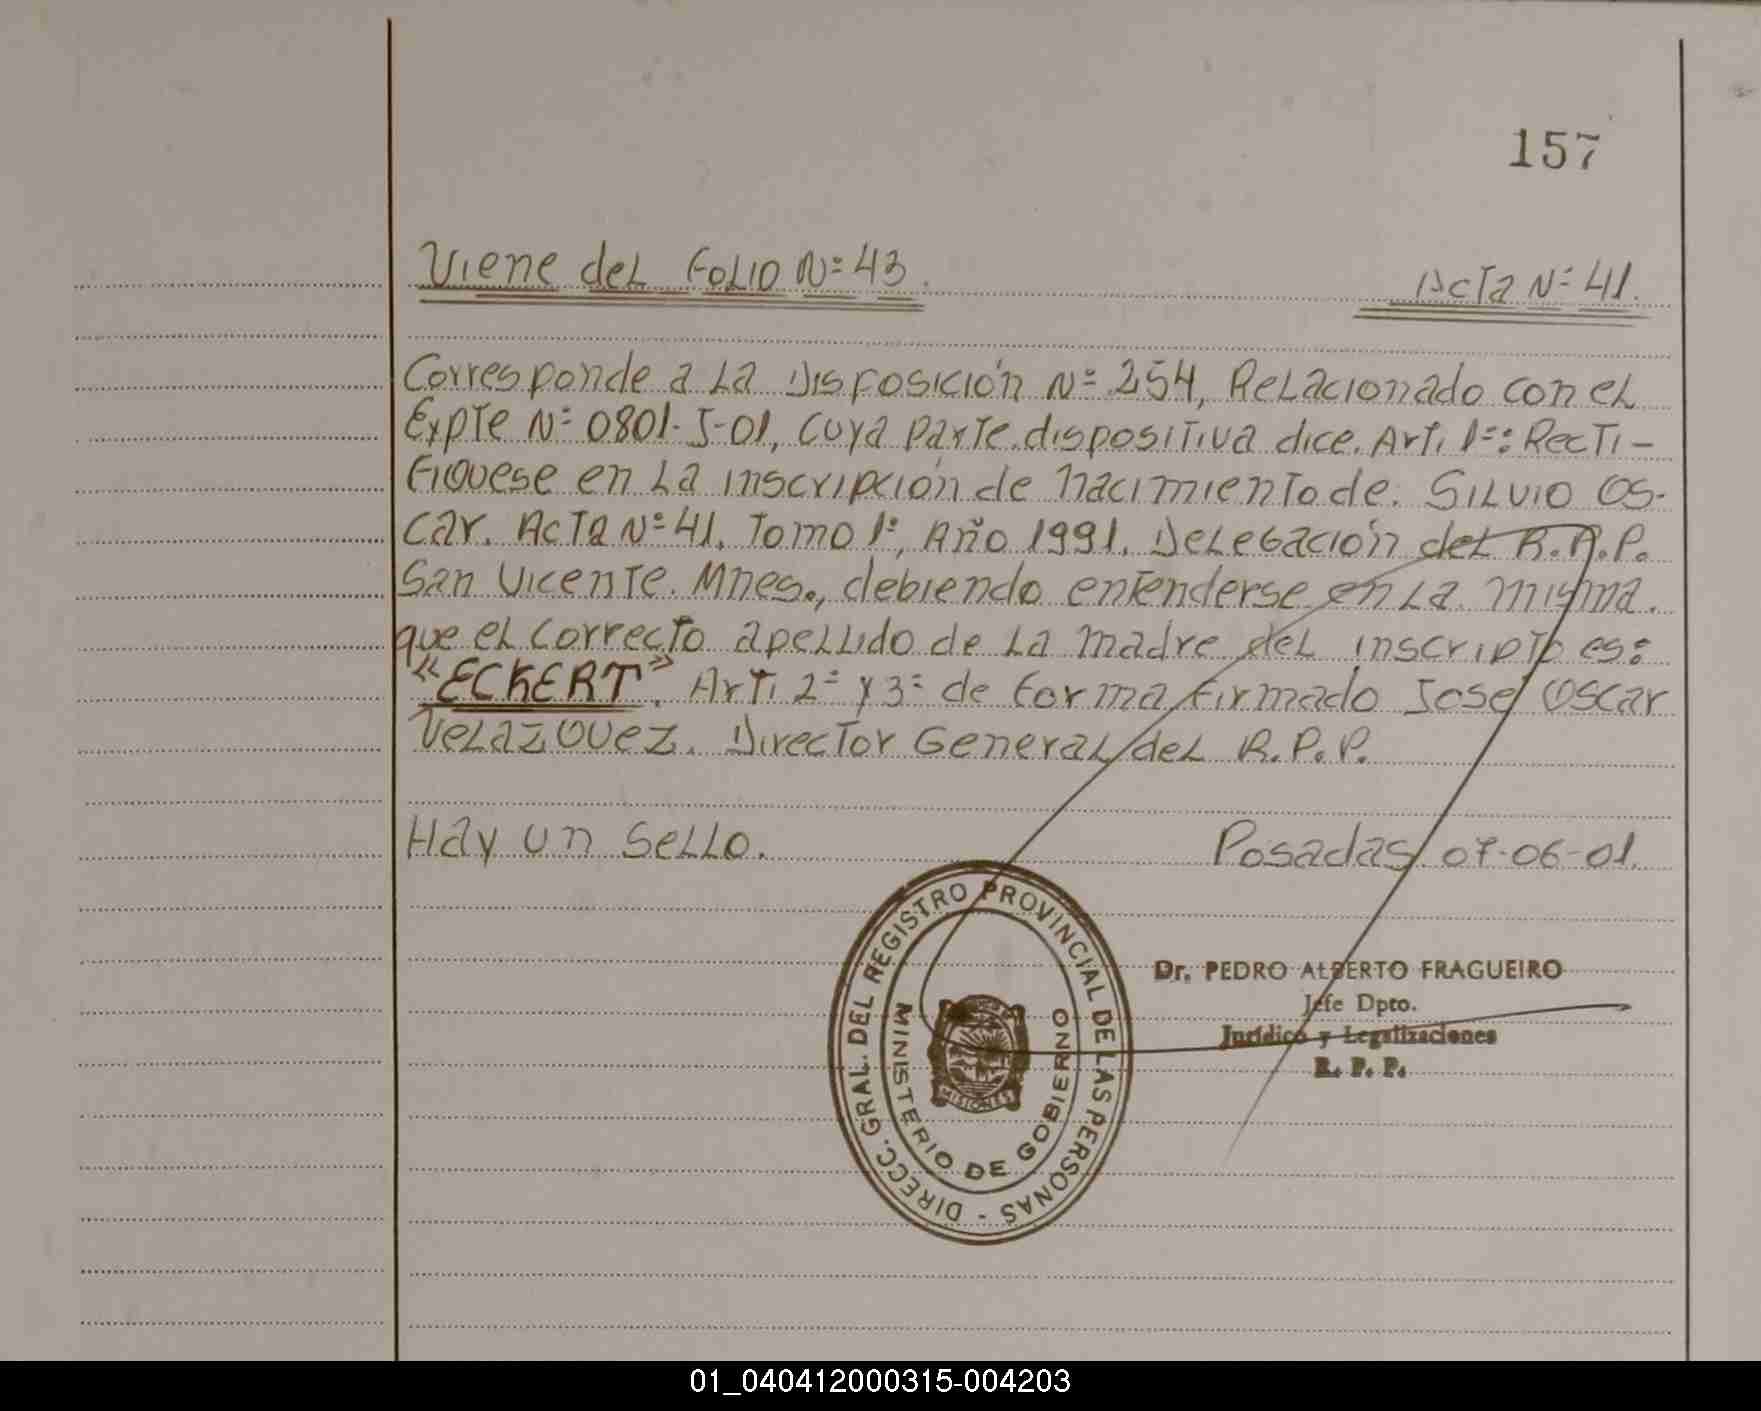 157
Viene del Folio Nº 43.
Acta Nº 41.
Corresponde a la Disposición Nº 254, Relacionado con el
Expte Nº 0801-J-01, cuya parte dispositiva dice. Art. 1º: Recti-
fiquese en la inscripción de nacimiento de. SILVIO OS-
car. Acta Nº 41. Tomo 1º, Año 1991. Delegación del R.P.P.
San Vicente. Mnes., debiendo entenderse en la misma.
que el correcto apellido de la madre del inscripto es:
"ECKERT". Art. 2º y 3º de forma firmado José Oscar
Velazquez. Director General del R.P.P.
Hay un sello.
Posadas 07-06-01.
DIRECC. GRAL. DEL REGISTRO PROVINCIAL DE LAS PERSONAS -
MINISTERIO DE GOBIERNO
MISIONES
Dr. PEDRO ALBERTO FRAGUEIRO
Jefe Dpto.
Jurídico y Legalizaciones
R. P. P.
01_040412000315-004203